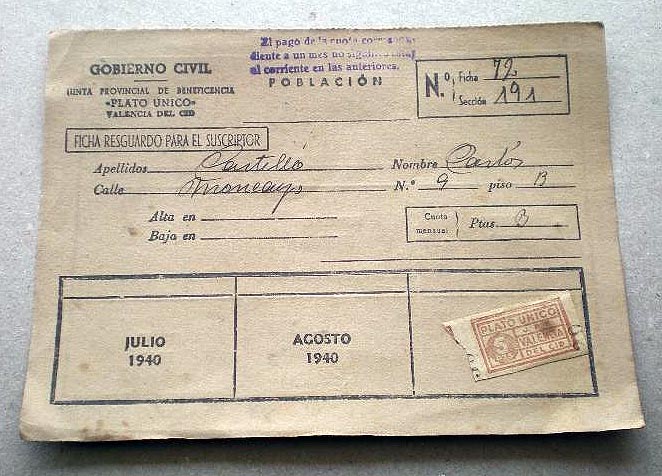 El pago de la cuota correspon-
diente a un mes no significa estar
al corriente en las anteriores.
POBLACIÓN
GOBIERNO CIVIL
JUNTA PROVINCIAL DE BENEFICENCIA
«PLATO UNICO»
VALENCIA DEL CID
N.º Ficha 72
Sección 191
FICHA RESGUARDO PARA EL SUSCRIPTOR
Apellidos Castelló Nombre Carlos
Calle Moncayo N.º 9 piso B
Alta en
Baja en
Cuota mensual Ptas. 3
JULIO
1940
AGOSTO
1940
PLATO UNICO
5
VALENCIA
DEL CID